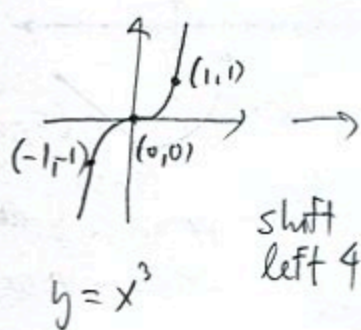 (1,1)
(-1,-1)
(0,0)
shift
left 4
y = x³